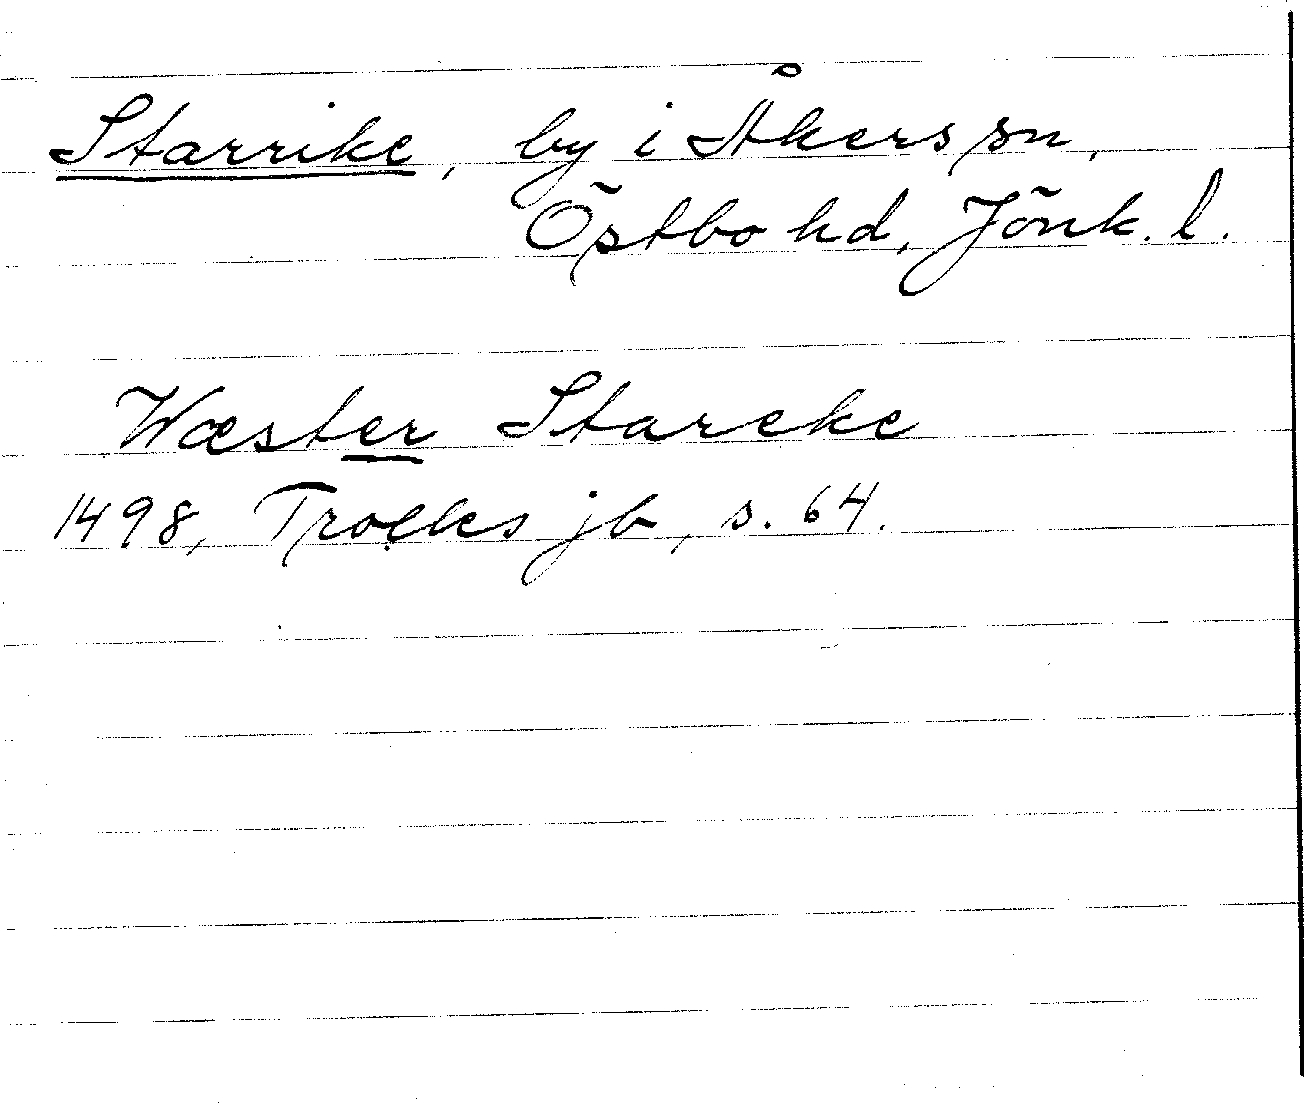 Starrike, by i Åkers sn,
Östbo hd, Jönk. l.
Wæster Starcke
1498, Trolles jb, s. 64.